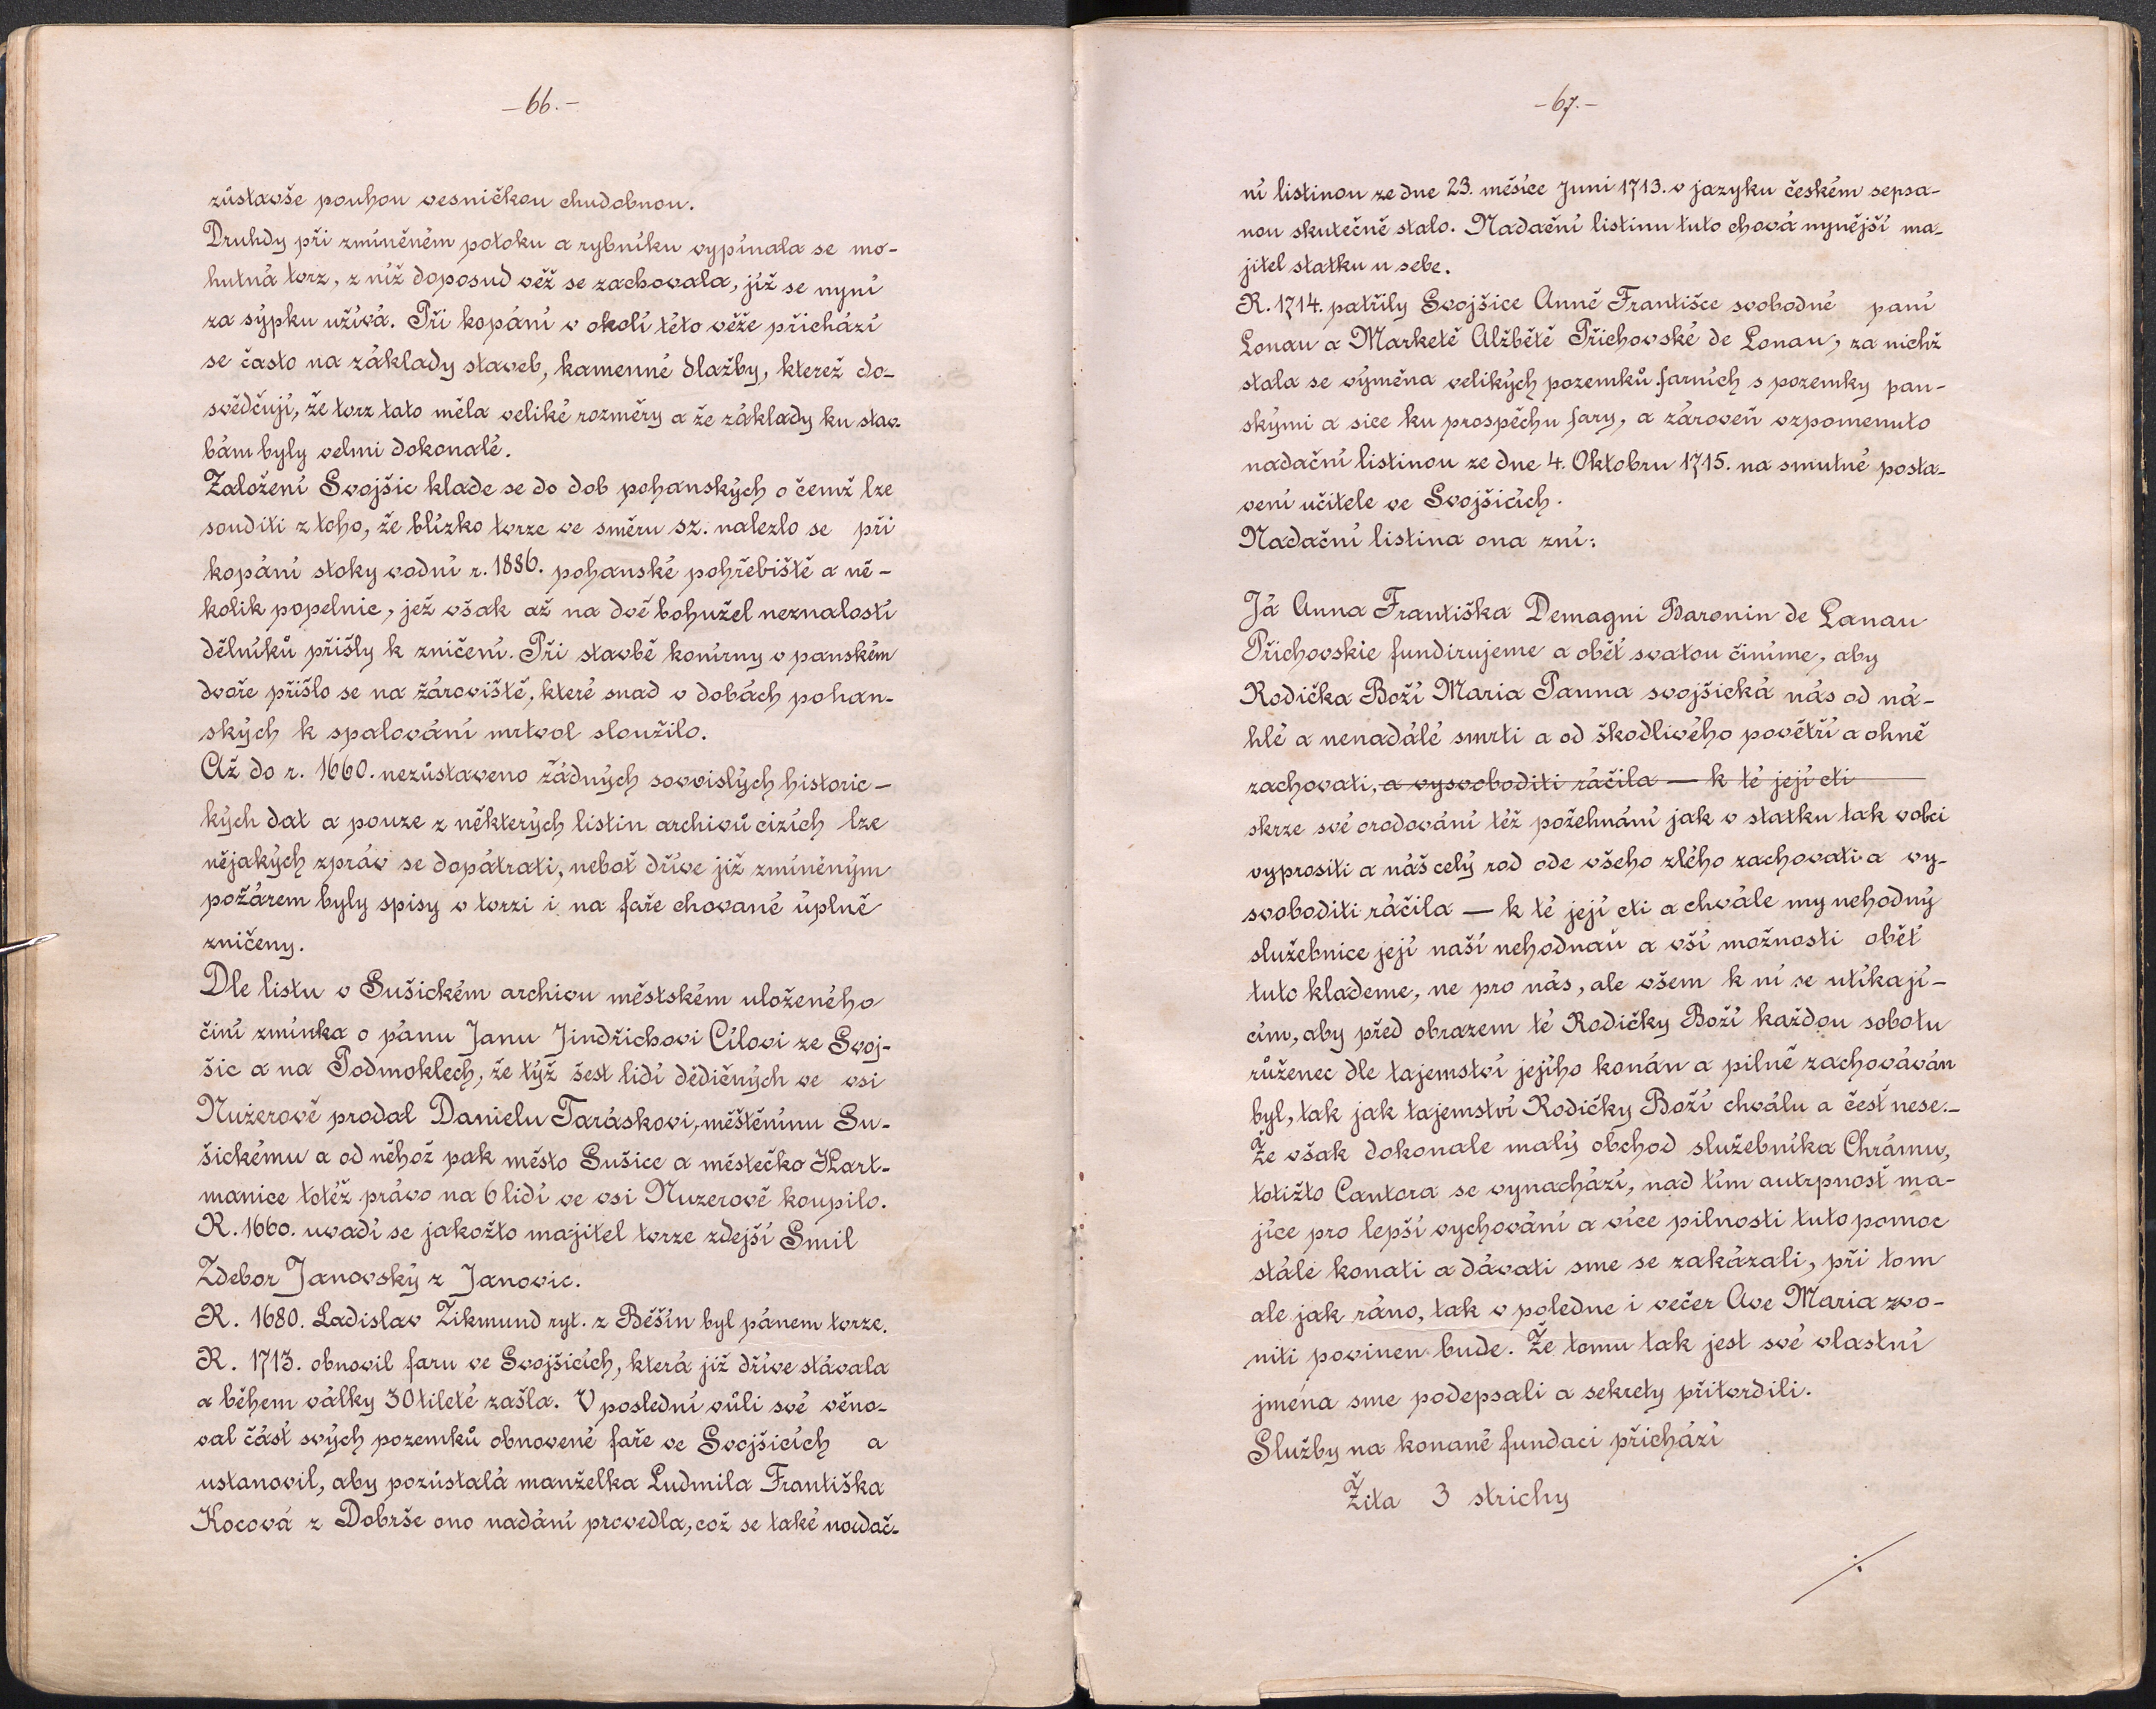 -66.-
zůstavše pouhou vesničkou chudobnou.
Druhdy při zmíněném potoku a rybníku vypínala se mo-
hutná tvrz, z níž doposud věž se zachovala, jíž se nyní
za sýpku užívá. Při kopání v okolí této věže přichází
se často na základy staveb, kamenné dlažby, kterež do-
svědčují, že tvrz tato měla veliké rozměry a že základy ku stav-
bám byly velmi dokonalé.
Založení Svojšic klade se do dob pohanských o čemž lze
souditi z toho, že blízko tvrze ve směru sz. nalezlo se při
kopání stoky vodní r. 1886. pohanské pohřebiště a ně-
kolik popelnic, jež však až na dvě bohužel neznalostí
dělníků přišly k zničení. Při stavbě konírny v panském
dvoře přišlo se na žároviště, které snad v dobách pohan-
ských k spalování mrtvol sloužilo.
Až do r. 1660. nezůstaveno žádných souvislých historic-
kých dat a pouze z některých listin archivů cizích lze
nějakých zpráv se dopátrati, neboť dříve již zmíněným
požárem byly spisy v tvrzi i na faře chované úplně
zničeny.
Dle listu v Sušickém archivu městském uloženého
činí zmínka o pánu Janu Jindřichovi Cílovi ze Svoj-
šic a na Podmoklech, že týž šest lidí dědičných ve vsi
Nuzerově prodal Danielu Taráskovi, měštěnínu Su-
šickému a od něhož pak město Sušice a městečko Hart-
manice totéž právo na 6 lidí ve vsi Nuzerově koupilo.
R. 1660. uvadí se jakožto majitel tvrze zdejší Smil
Zdebor Janovský z Janovic.
R. 1680. Ladislav Zikmund ryt. z Běšín byl pánem tvrze.
R. 1713. obnovil faru ve Svojšicích, která již dříve stávala
a během války 30tileté zašla. V poslední vůli své věno-
val část svých pozemků obnovené faře ve Svojšicích a
ustanovil, aby pozůstalá manželka Ludmila Františka
Kocová z Dobrše ono nadání provedla, což se také nadač-
-67.-
ní listinou ze dne 23. měsíce Juni 1713. v jazyku českém sepsa-
nou skutečně stalo. Nadační listinu tuto chová nynější ma-
jitel statku u sebe.
R. 1714. patřily Svojšice Anně Františce svobodné paní
Lonau a Marketě Alžbětě Přichovské de Lonau, za nichž
stala se výměna velikých pozemků farních s pozemky pan-
skými a sice ku prospěchu fary, a zároveň vzpomenuto
nadační listinou ze dne 4. Oktobru 1715. na smutné posta-
vení učitele ve Svojšicích.
Nadační listina ona zní:
Já Anna Františka Demagni Baronin de Lanau
Přichovskie fundirujeme a oběť svatou činíme, aby
Rodička Boží Maria Panna svojšická nás od ná-
hlé a nenadálé smrti a od škodlivého povětří a ohně
zachovati, a vysvoboditi ráčila — k té její cti
skrze své orodování též požehnání jak v statku tak vobci
vyprositi a náš celý rod ode všeho zlého zachovati a vy-
svoboditi ráčila — k té její cti a chvále my nehodný
služebnice její naší nehodnaú a vší možnosti oběť
tuto klademe, ne pro nás, ale všem k ní se utíkají-
cím, aby před obrazem té Rodičky Boží každou sobotu
růženec dle tajemství jejího konán a pilně zachováván
byl, tak jak tajemství Rodičky Boží chválu a čest nese:-
Že však dokonale malý obchod služebníka Chrámu,
totižto Cantora se vynachází, nad tím autrpnosť ma-
jíce pro lepší vychování a více pilnosti tuto pomoc
stále konati a dávati sme se zakázali, při tom
ale jak ráno, tak v poledne i večer Ave Maria zvo-
niti povinen bude. Že tomu tak jest své vlastní
jména sme podepsali a sekrety přitvrdili.
Služby na konané fundaci přichází
Žita 3 strichy
./.